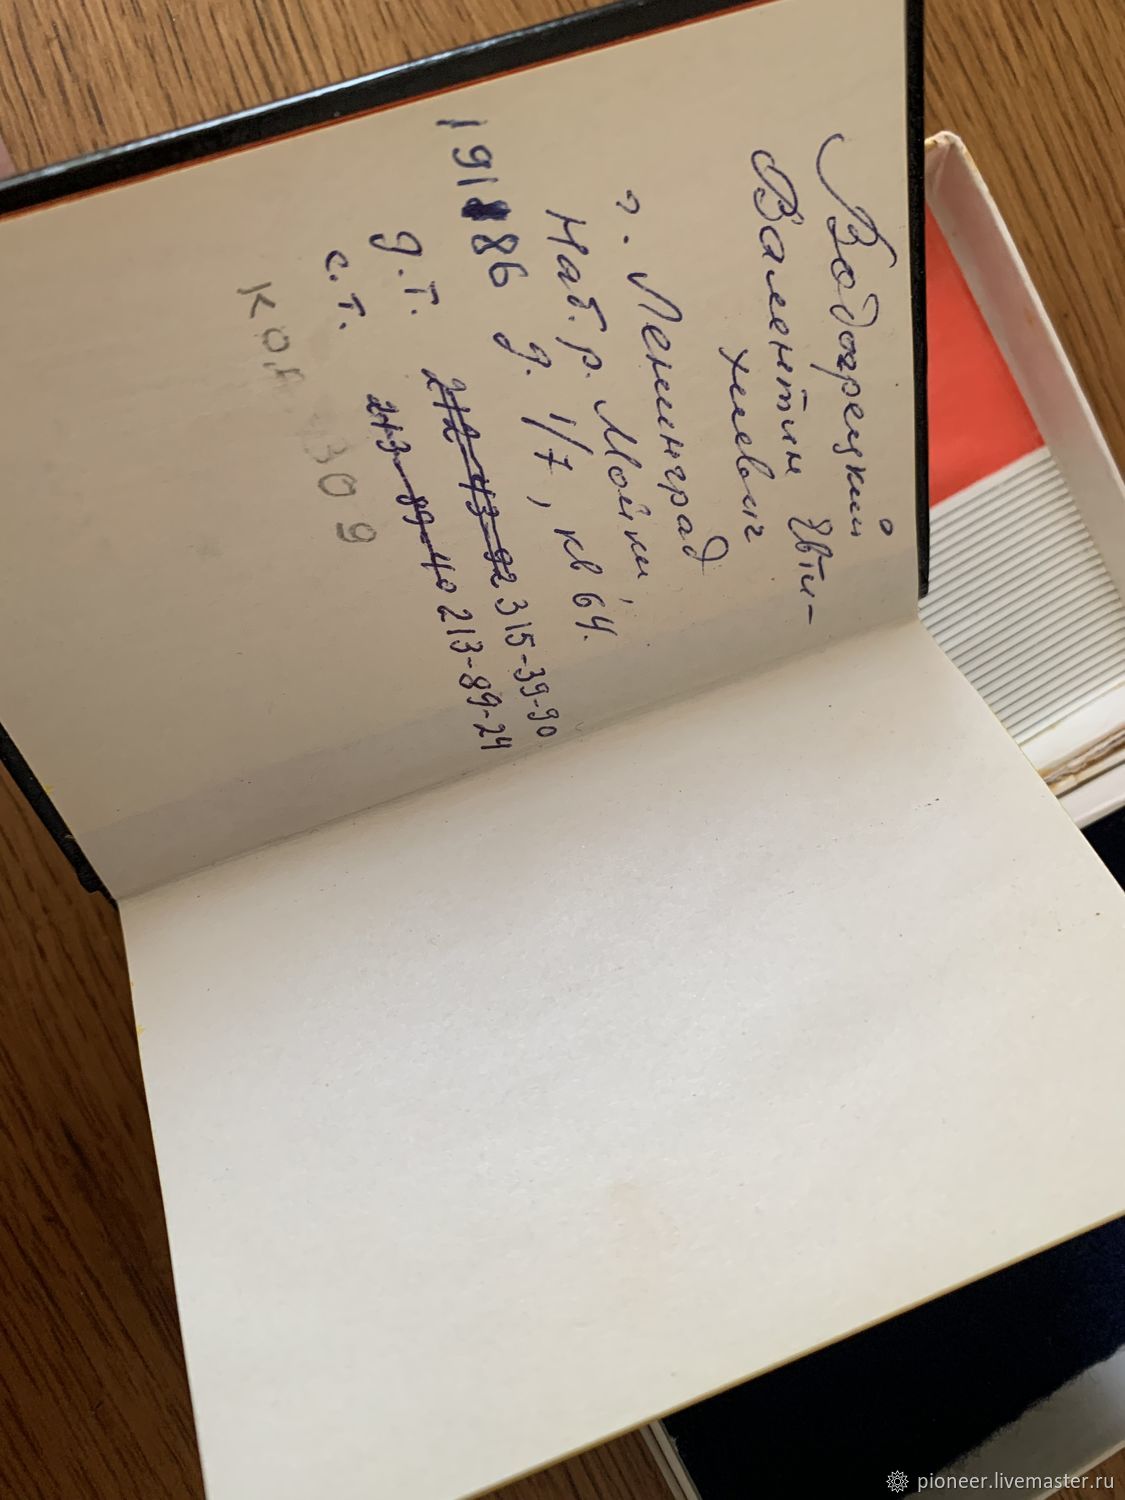 Водогрецкий
Валентин Евти-
хиевич
г. Ленинград
Наб. р. Мойки,
191186 д. 1/7, кв 64.
д.т. 212-43-92 315-39-90
с.т. 213-89-40 213-89-24
309
pioneer.livemaster.ru